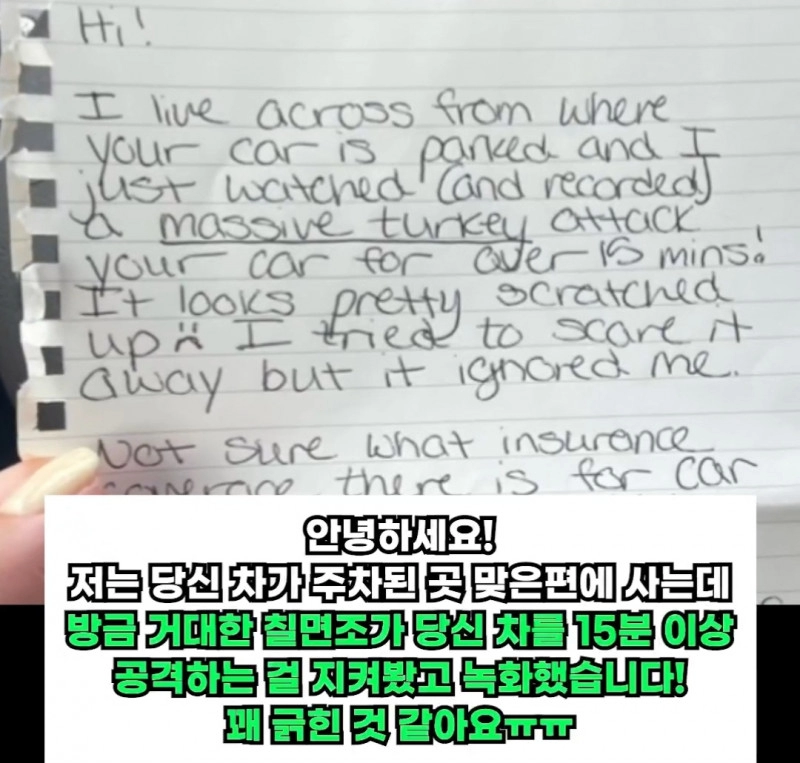 Hi!
I live across from where
your car is parked and I
just watched (and recorded)
a massive turkey attack
your car for over 15 mins!
It looks pretty scratched
up :( I tried to scare it
away but it ignored me.
Not sure what insurance
coverage there is for car
안녕하세요!
저는 당신 차가 주차된 곳 맞은편에 사는데
방금 거대한 칠면조가 당신 차를 15분 이상
공격하는 걸 지켜봤고 녹화했습니다!
꽤 긁힌 것 같아요ㅠㅠ